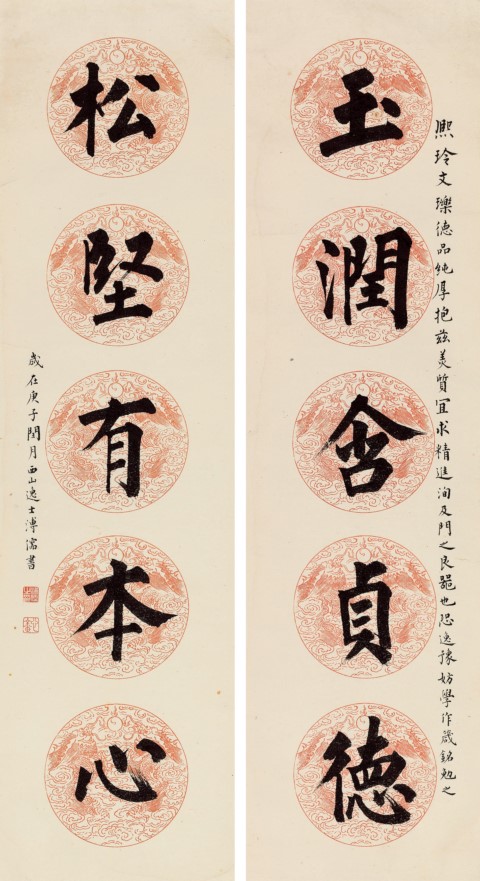 熙玲文瓅德品純厚抱茲美質宜求精進洵及門之良器也恐逸豫妨學作箴銘勉之
玉潤含貞德
松堅有本心
歲在庚子閏月西山逸士溥儒書